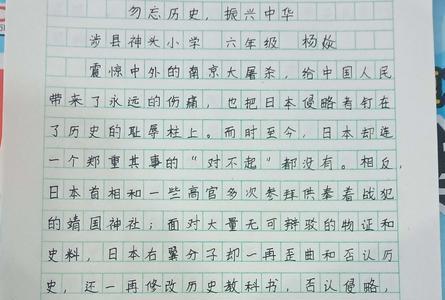 勿忘历史，振兴中华
涉县神头小学 六年级 杨焱
震惊中外的南京大屠杀，给中国人民
带来了永远的伤痛，也把日本侵略者钉在
了历史的耻辱柱上。而时至今，日本却连
一个郑重其事的“对不起”都没有。相反，
日本首相和一些高官多次参拜供奉着战犯
的靖国神社；面对大量无可辩驳的物证和
史料，日本右翼分子却一再歪曲和否认历
史，还一再修改历史教科书，否认侵略，